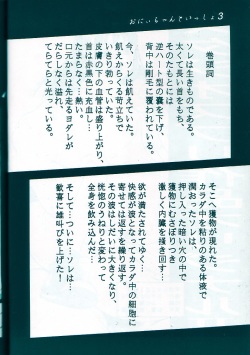 おにいちゃんといっしょ3
巻頭詞
ソレは生きものである。
太くて長い首をもち、
そのたもとには
逆ハート型の嚢を下げ、
背中は剛毛に覆われている。
今、ソレは飢えていた。
飢えからくる苛立ちで
いきり勃っていた。
皮膚の下の血管は盛り上がり、
首は赤黒色に充血し…
たまらなく…熱い。
口元からは先走るヨダレが
だらしなく溢れ、
てらてらと光っている。
そこへ獲物が現れた。
カラダ中を粘りのある体液で
潤おったソレは、
押し入った暗い火の中で
獲物にむさぼりつき
激しく内臓を掻き回す…
欲が満たされてゆく…
快感が波となってカラダ中の細胞に
寄せては返すを繰り返す。
その波はしだいに大きくなり、
恍惚のうねりと変わって
全身を飲み込んだ…
そして…ついに…ソレは…
歓喜に雄叫びを上げた!